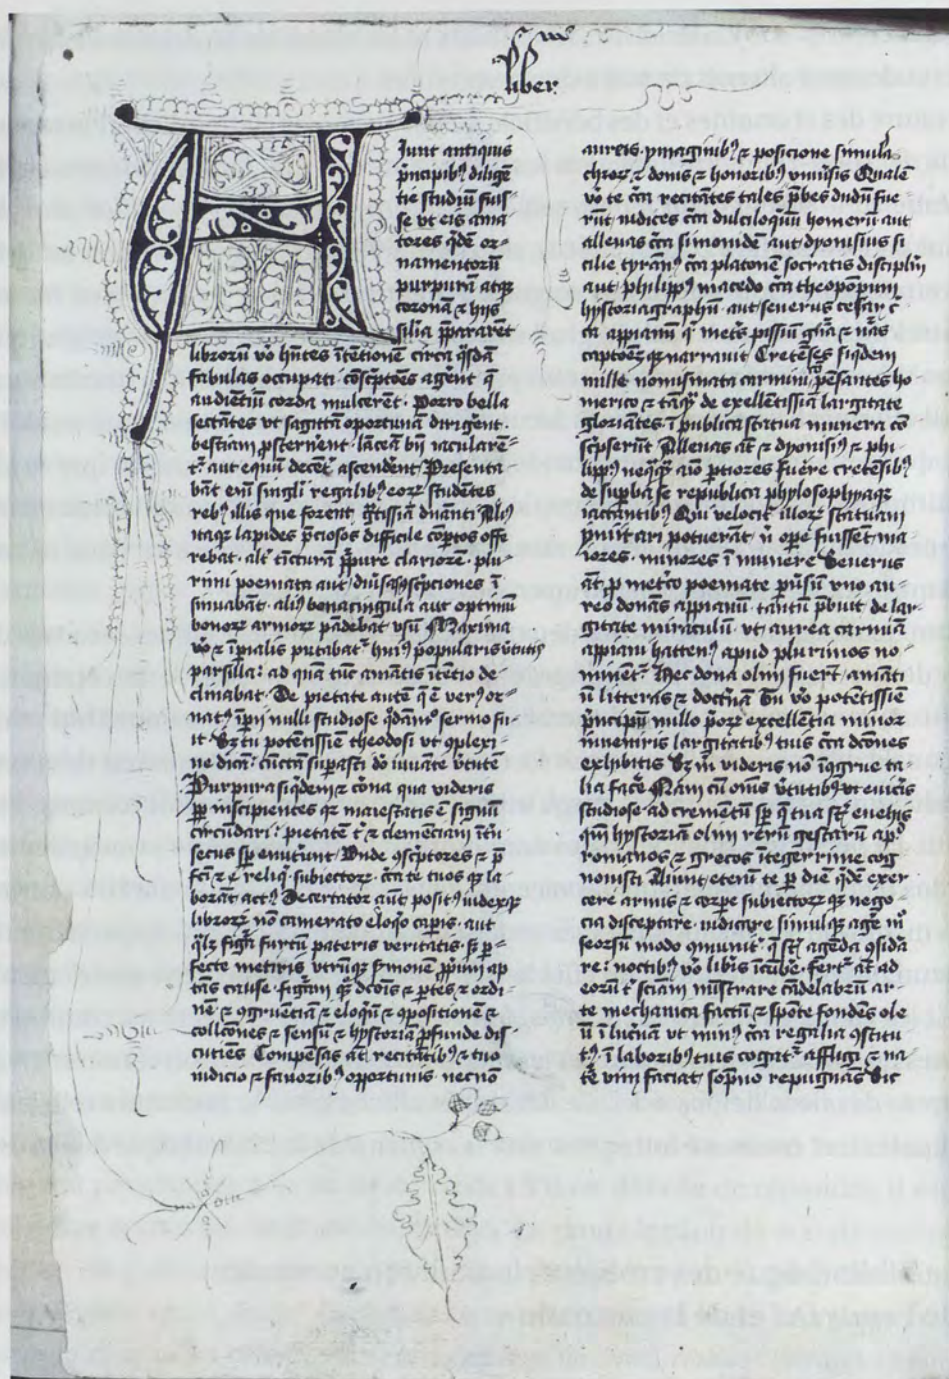 liber
A
iunt antiquis
p̄ncipib₉ diligē
tie studiū fuis
se vt eis ama
tores q̄dē or-
namentorū
purpurā atqꝫ
coronā ⁊ hijs
silia p̄pararēt
librorū v̄o hn̄tes ītētionē circa q̄sdā
fabulas occupati cōsc̄ptōes agēnt q̄
audiētiū corda mulcerēt. Porro bella
sectātes vt sagittā oportunā dirigēnt.
bestiam ꝓsternēnt. lācēā bn̄ iacularēn-
t᷒ aut equū decēt᷒ ascendēnt. Presenta
bāt em̄ singlī regalib₉ eoꝝ studētes
reb₉ illis que forent gͣtissiā duͣanti. Ali₉
itaqꝫ lapides p̄ciosos difficile cōptos offe
rebat. alt᷒ tīcturā p̄pure clariorē. plu-
rimi poemata aut diūsas osc̄pciones ī
sinuabāt. ali₉ bona cingula aut optimū
bonoꝝ armoꝝ pādebat vsū Maxima
v̄o ⁊ īpialis putabat᷒ hui₉ p̄popularis v̄tutis
parsilla: ad quā tūc amātis ītētio de
clinabat. De pietate autē q̄ ē ver₉ or-
nat₉ īpii nulli studiose q̄dāmͦ sermo fu-
it Sꝫ tu potētissīe theodosi vt ꝯplexi-
ne dicā: cūctā suꝑasti dō iuvāte v̄tutē
Purpura siqdē ⁊ cōna qua videris
ꝓp̄ inscipientes qꝫ maiestatis ē signum
circūdari: pietatē t᷒ ⁊ clemenciam ītri
secus sp̄ enutriunt. Vnde ꝯsc̄ptores ⁊ p̄
fc̄i ⁊ reliq̄ subiectoꝝ c̄ca te tuos qꝫ la
borāt act₉ Decertator aūt posit₉ iudexqꝫ
libroꝝ nō camerato eloqͦ capis. aut
qͣlꝫ figͣm furtū pateris veritatis. sꝫ ꝑ-
fecte metiris vtrūqꝫ sermonē p̄rimū ap
tās cause. figͣm qꝫ dcōis ⁊ ꝑtes ⁊ ordi-
nē ⁊ ꝯgruētiā ⁊ eloqͥū ⁊ ꝯpositionē ⁊
collcōnes ⁊ sensū ⁊ hystoriā ꝓfunde dis
cutiēs Compēsas at recitātib₉ ⁊ tuo
iudicio ⁊ favorib₉ opportunis necnō
aureis ymaginib₉ ⁊ posicione simula
chroꝝ ⁊ donis ⁊ honorib₉ vniūsis Qualē
v̄o te c̄ca recitātes tales p̄bes dudū fue
rūt iudices c̄ca dulciloquū homerū aut
allevas c̄ca simonidē aut dyonisius si
cilie tyrān₉ c̄ca platonē socratis disciplīn
aut philipp₉ macedo c̄ca theopōpum
hystoriagraphū. aut severus cesar c̄
ca appianū qͥ met᷒s pissiū gn̄a ⁊ nās
captōeꝫ qꝫ narravit Cretēses siqdem
mille nomismata carminū p̄esantes ho
merico ⁊ tāqꝫ de exellētissiā largitate
gloriātes ī publica statua munera cō
sc̄pserūt Allevas at ⁊ dyonisi₉ ⁊ phi
lipp₉ neq̄qꝫ aūo ꝑtiores fuēre cretēsib₉
de suꝑba se republica phylosophyaqꝫ
iactātib₉ Qui velocit᷒ illoꝝ statuam
ymitari potuerāt. si opē fuissēt ma
iores. minores ī munere Severus
āt. ꝓ metͥco poemate ꝑ v̄sum vno au-
reo donās appianū. tātū p̄buit de lar-
gitate miraculū vt aurea carmīa
appiani hatten₉ apud plurimos no-
minēt᷒. Hec dona olim fuerūt amāti
ū litteras ⁊ doctͥnā Tu v̄o potētissīe
p̄ncipū nullo p̄oꝝ excellētia minor
inveniris largitatib₉ tuis c̄ca dcōnes
exhibitis Sꝫ m̄ videris nō īcōgrue ta-
lia facē Nam cū om̄is v̄tutib₉ vt evicīs
studiose ad cremētū sp̄ q̄ tua sūt evehis
qm̄ hystoriā olim rerū gestarū apᵈ
romanos ⁊ grecos īntegerrime cog
novisti Aiunt eterū te ꝑ diē q̄dē exer
cere armis ⁊ corpe subiectoꝝ qꝫ nego-
cia disceptare. iudicāre simulqꝫ agē nūc
seorsū modo ꝯmunit᷒. q̄ sūt agēda ꝯsidā
re: noctib₉ v̄o libris īcūbē. fert᷒ āt ad
eorū t᷒ sciam ministrare cādelabrū ar-
te mechanica factū ⁊ spōte fondēs ole
ū ī lucīnā vt min₉ c̄ca regalia ꝯstitu
t₉. ī laborib₉ tuis cogat᷒ affligi ⁊ na
tē vim faciat sopno repugnās Sic